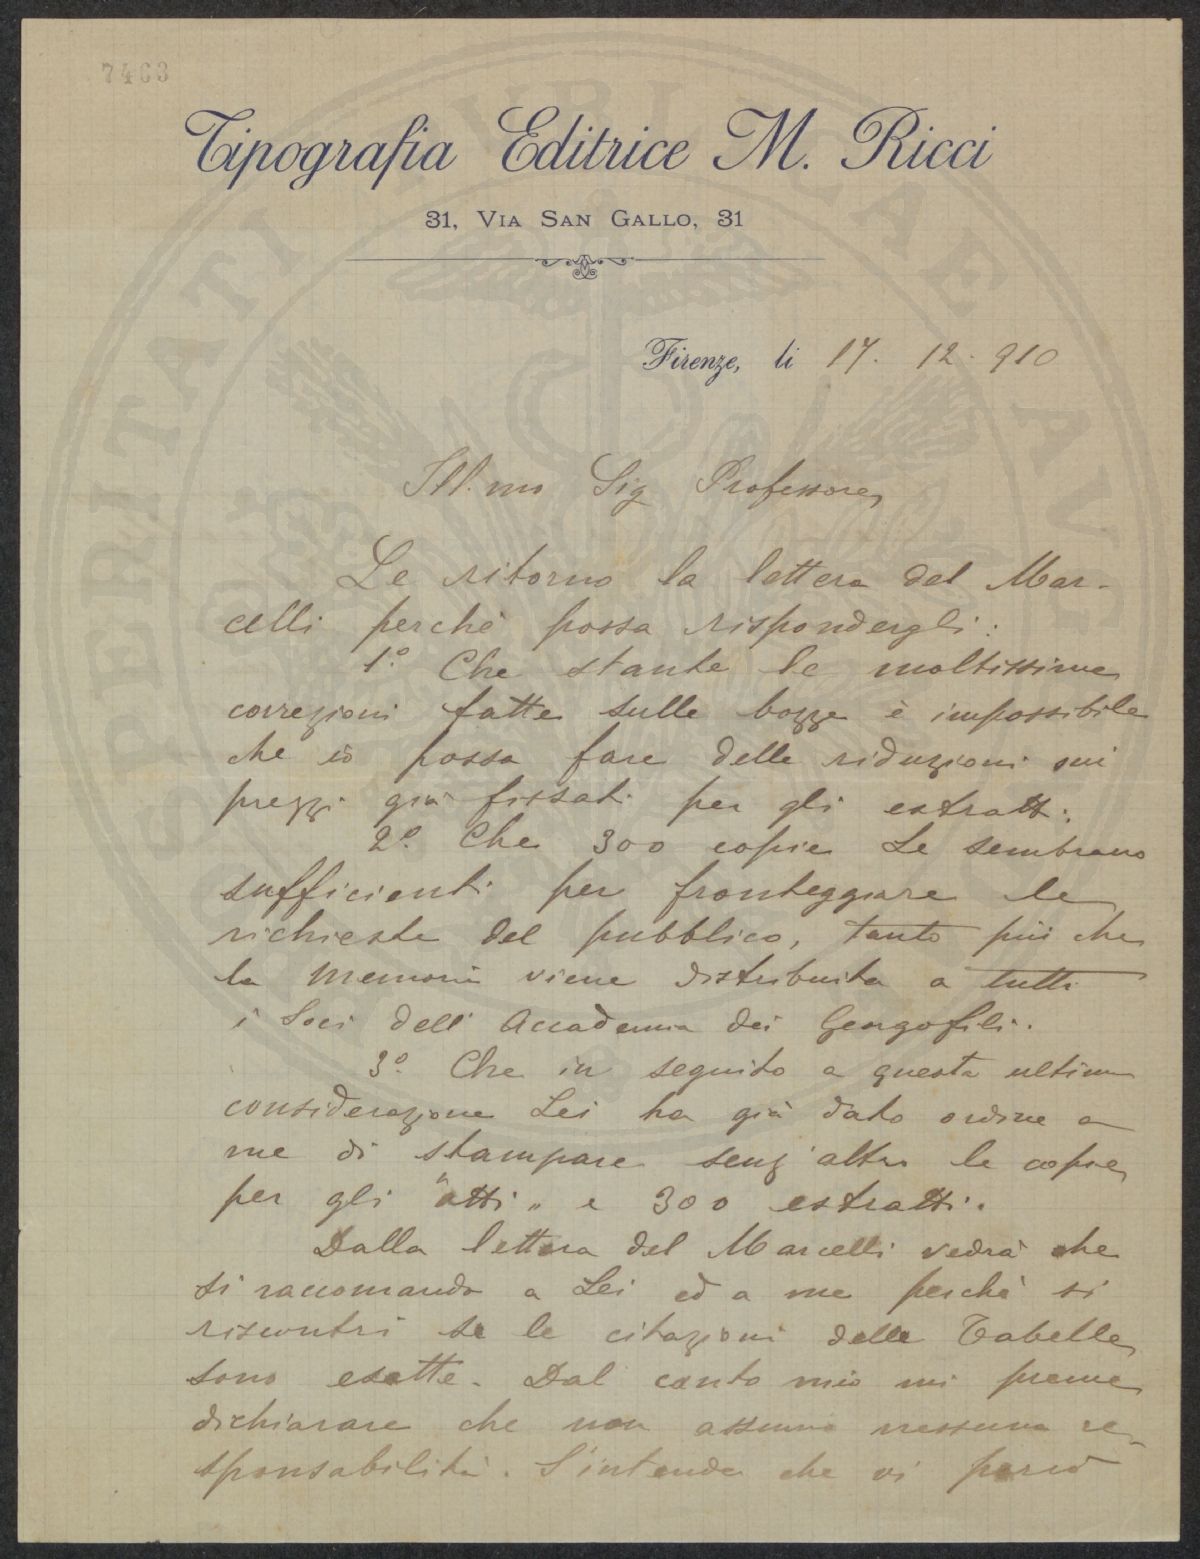 7463
Tipografia Editrice M. Ricci
31, Via San Gallo, 31
Firenze, li 17. 12. 910
Ill.mo Sig Professore,
Le ritorno la lettera del Mar-
celli perchè possa rispondergli:
1.° Che stante le moltissime
correzioni fatte sulle bozze è impossibile
che io possa fare delle riduzioni sui
prezzi già fissati per gli estratti;
2.° Che 300 copie Le sembrano
sufficienti per fronteggiare le
richieste del pubblico, tanto più che
la memoria viene distribuita a tutti
i Soci dell'Accademia dei Georgofili.
3.° Che in seguito a questa ultima
considerazione Lei ha già dato ordine a
me di stampare senz'altro le copie
per gli "atti" e 300 estratti.
Dalla lettera del Marcelli vedrà che
si raccomanda a Lei ed a me perchè si
riscontri se le citazioni delle Tabelle
sono esatte. Dal canto mio mi preme
dichiarare che non assumo nessuna re-
sponsabilità. S'intende che vi
PROSPERITATI PUBLICAE AUGENDAE